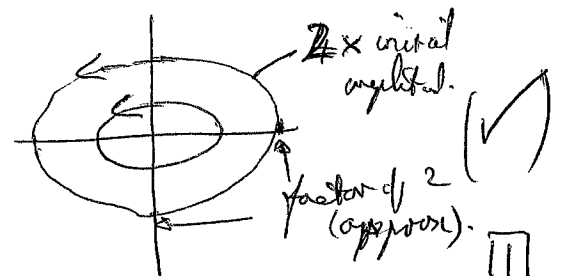 2 × initial
amplitud.
factor of 2
(approx).
1